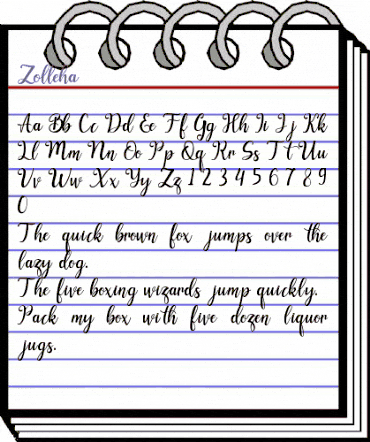 Zolleha
Aa Bb Cc Dd Ee Ff Gg Hh Ii Jj Kk
Ll Mm Nn Oo Pp Qq Rr Ss Tt Uu
Vv Ww Xx Yy Zz 1 2 3 4 5 6 7 8 9
0
The quick brown fox jumps over the
lazy dog.
The five boxing wizards jump quickly.
Pack my box with five dozen liquor
jugs.